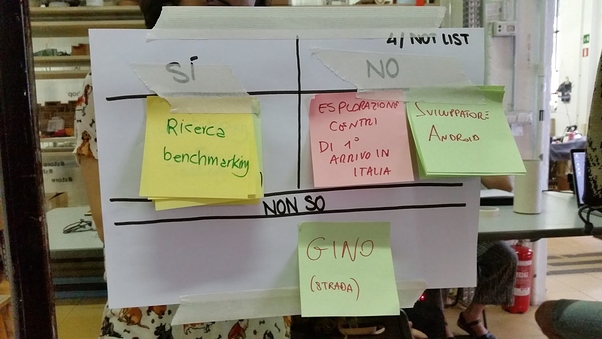 4/ NOT LIST
SÍ
NO
Ricerca
benchmarking
ESPLORAZIONE
CENTRI
DI 1°
ARRIVO IN
ITALIA
SVILUPPATORE
ANDROID
NON SO
GINO
(STRADA)